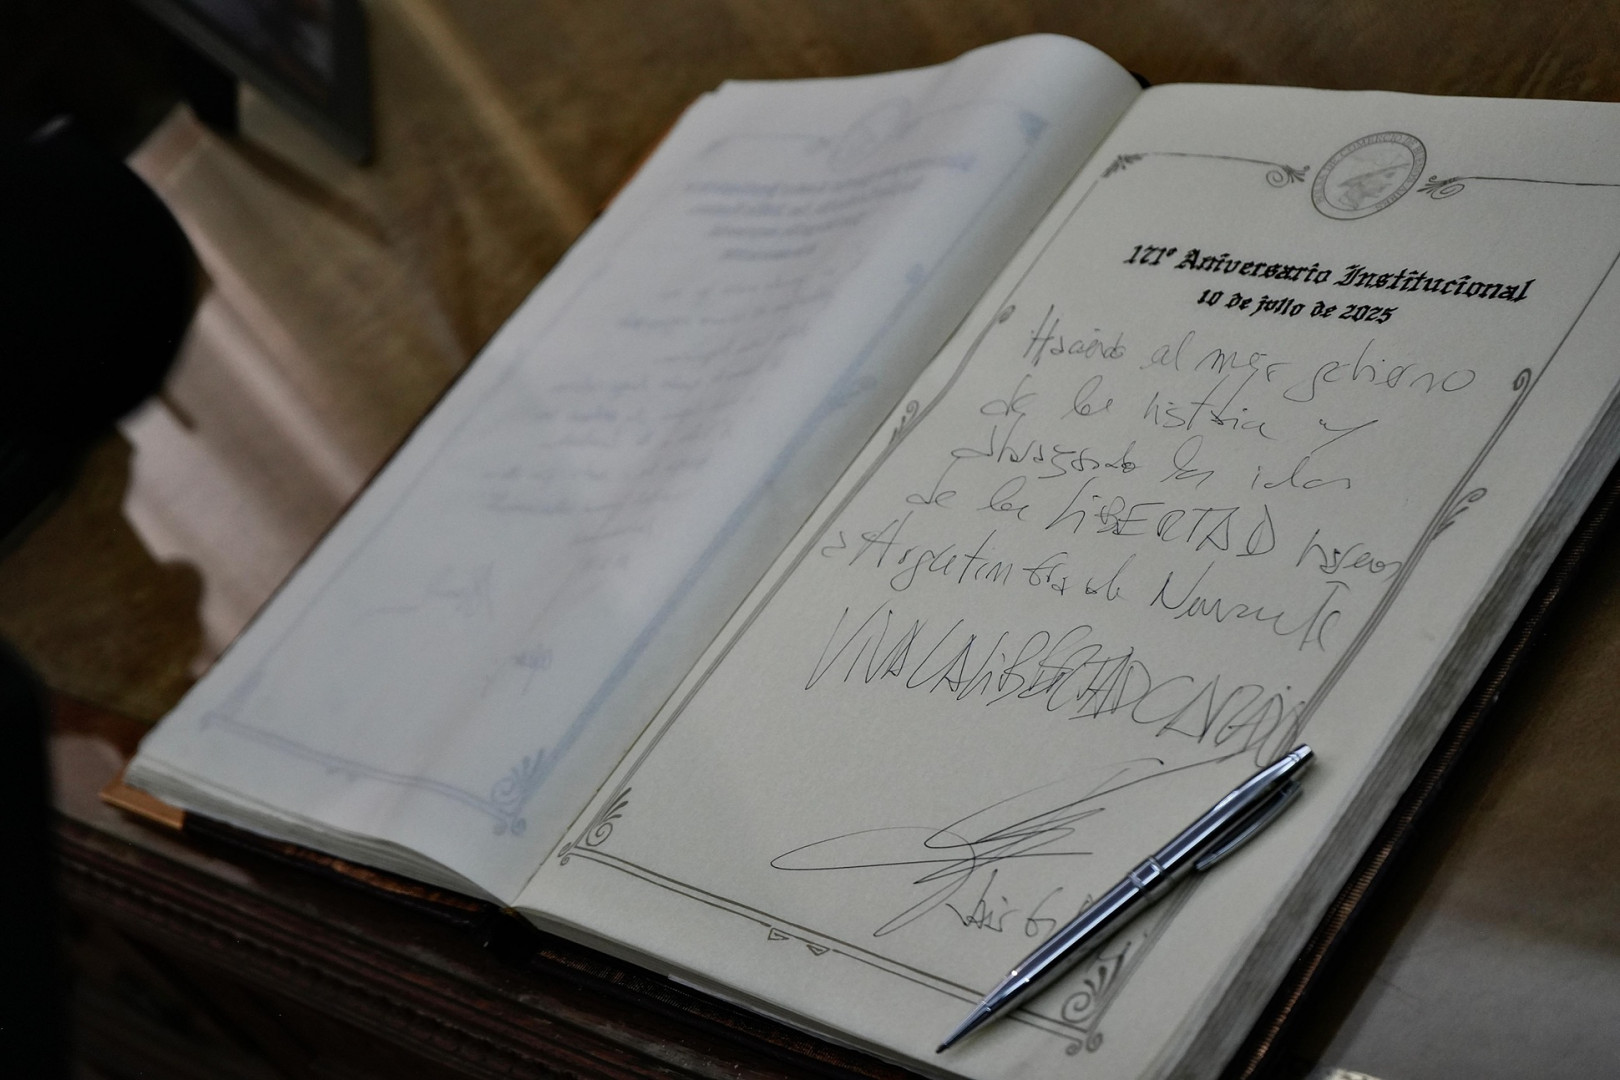 171º Aniversario Institucional
10 de julio de 2025
Haciendo el mejor gobierno
de la historia y
abrazando las ideas
de la LIBERTAD hagamos
a Argentina Grande Nuevamente
VIVA LA LIBERTAD CARAJO